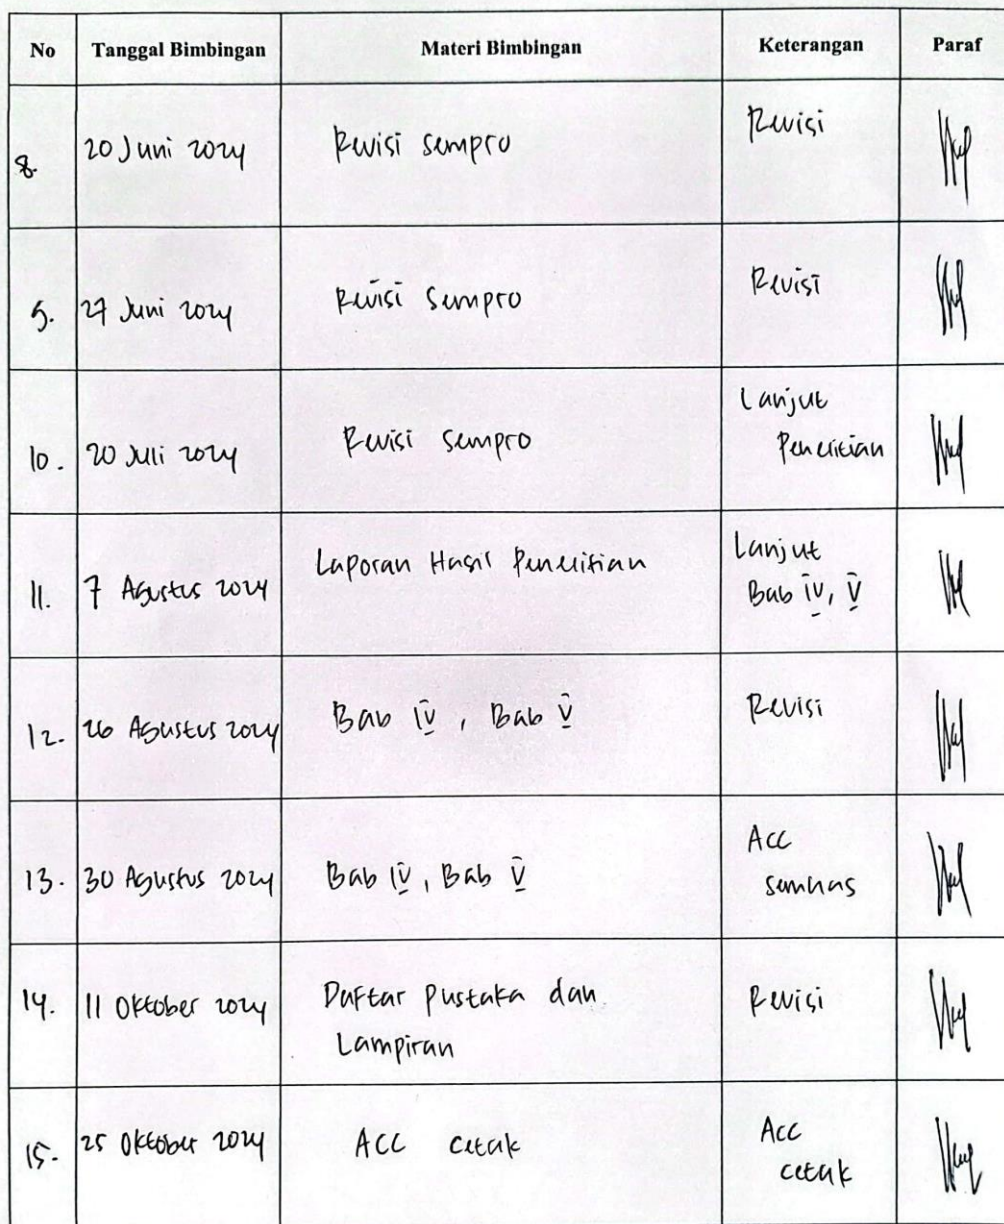 No Tanggal Bimbingan Materi Bimbingan Keterangan Paraf
8. 20 Juni 2024 Revisi sempro Revisi
9. 27 Juni 2024 Revisi Sempro Revisi
10. 20 Juli 2024 Revisi sempro Lanjut
Penelitian
11. 7 Agustus 2024 Laporan Hasil Penelitian Lanjut
Bab IV, V
12. 26 Agustus 2024 Bab IV, Bab V Revisi
13. 30 Agustus 2024 Bab IV, Bab V Acc
semhas
14. 11 Oktober 2024 Daftar pustaka dan Revisi
Lampiran
15. 25 Oktober 2024 ACC cetak Acc
cetak